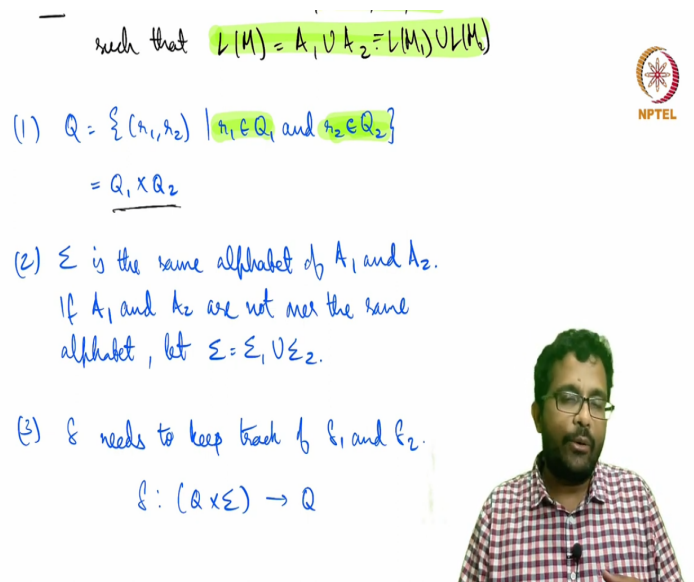 such that L(M) = A₁ ∪ A₂ = L(M₁) ∪ L(M₂)
NPTEL
(1) Q = {(r₁, r₂) | r₁ ∈ Q₁ and r₂ ∈ Q₂}
= Q₁ × Q₂
(2) Σ is the same alphabet of A₁ and A₂.
If A₁ and A₂ are not over the same
alphabet, let Σ = Σ₁ ∪ Σ₂.
(3) δ needs to keep track of δ₁ and δ₂.
δ : (Q × Σ) → Q